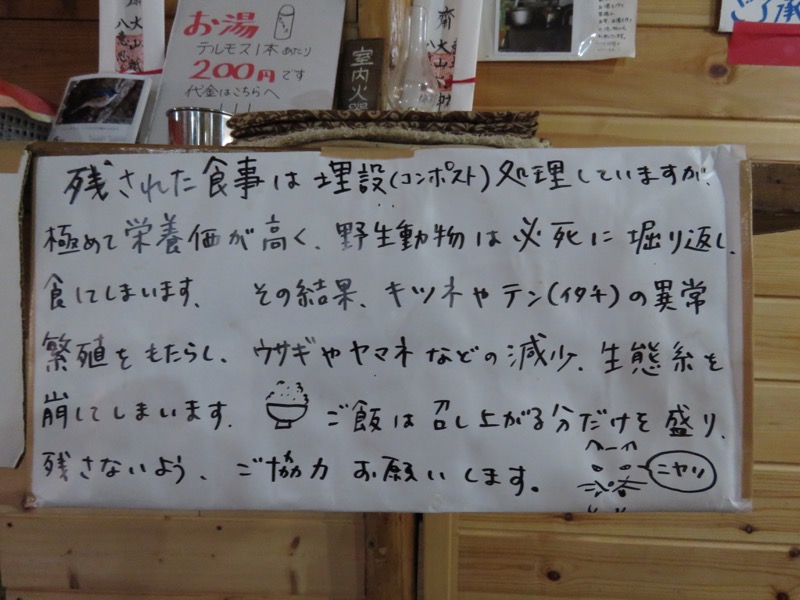 お湯
テルモス1本あたり
200円です
代金はこちらへ
室内火器
ご了承
残された食事は埋設(コンポスト)処理していますが、
極めて栄養価が高く、野生動物は必死に堀り返し、
食してしまいます。 その結果、キツネやテン(イタチ)の異常
繁殖をもたらし、ウサギやヤマネなどの減少、生態系を
崩してしまいます。 ご飯は召し上がる分だけを盛り、
残さないよう、ご協力お願いします。
ニヤリ